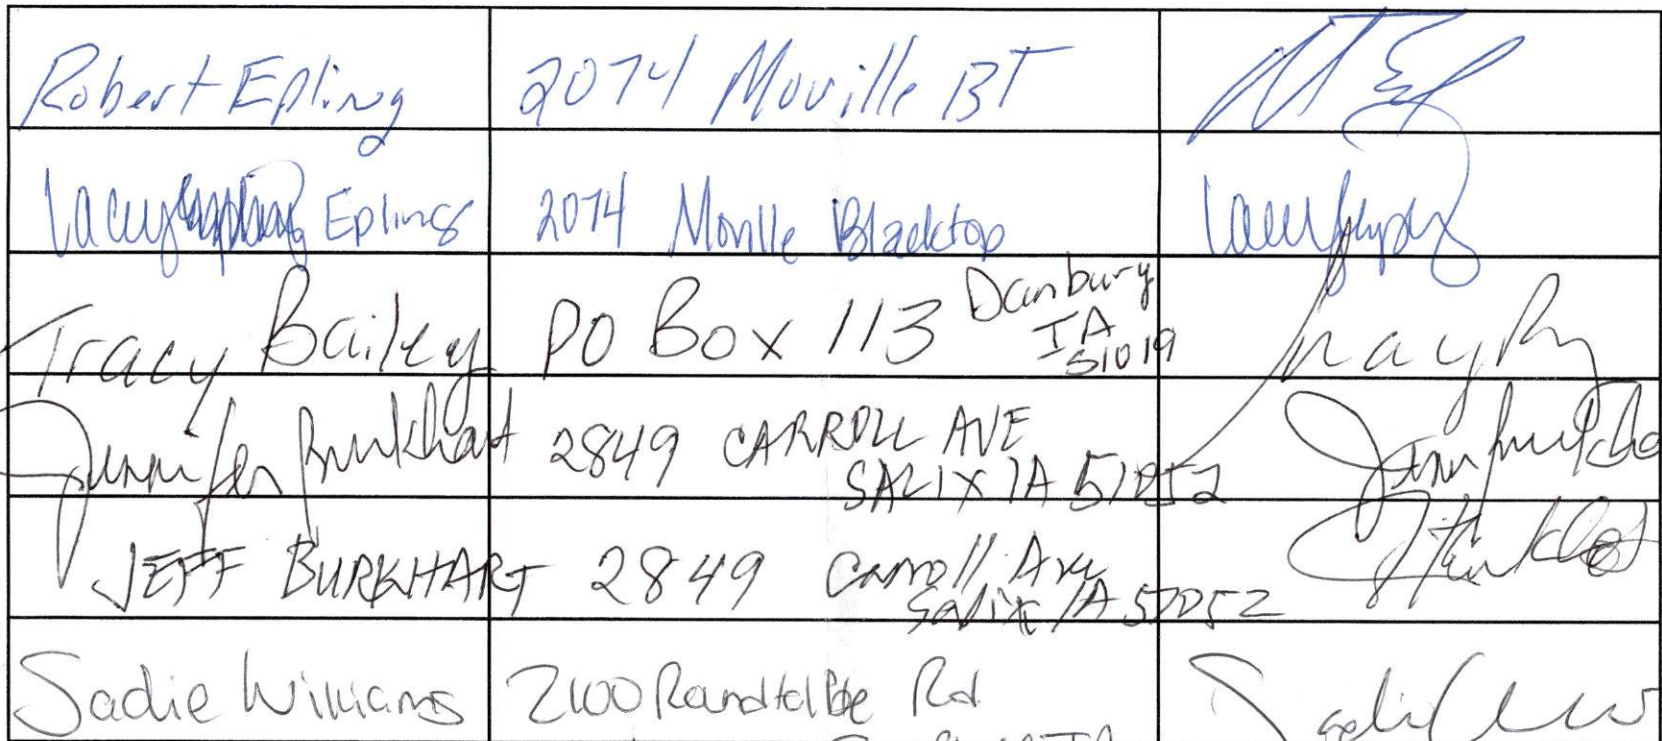 Robert Epling 2074 Moville BT
Lacey Eplings 2074 Moville Blacktop
Tracy Bailey PO Box 113 Danbury
IA
51019
Jennifer Burkhart 2849 CARROLL AVE
SALIX IA 51052
JEFF BURKHART 2849 Carroll Ave
Salix IA 51052
Sadie Williams Rd